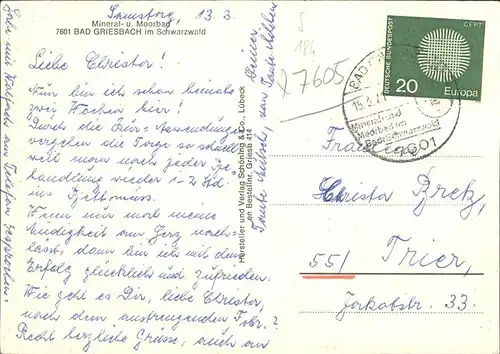 Samstag, 13.3.
Mineral- u. Moorbad
7601 BAD GRIESBACH im Schwarzwald
Liebe Christa!
Nun bin ich schon beinahe
zwei Wochen hier!
Durch die Kur-Anwendungen
vergehen die Tage so schnell
weil man nach jeder Be-
handlung wieder 1-2 Std.
ins Bett muss.
Wenn nur mal meine
Müdigkeit am Herz nach-
lässt, dann bin ich mit dem
Erfolg glücklich und zufrieden.
Wie geht es Dir, liebe Christa,
nach dem anstrengenden
Recht herzliche Grüsse, auch an
Deiner lieben
von Tante
Habe mit Waltraud am Telefon gesprochen.
Hersteller und Verlag Schöning & Co., Lübeck
Bestellnr. Griesb 414
27605
DEUTSCHE BUNDESPOST
CEPT
20 Europa
BAD
15.3.71
Mineral- und
Moorbad im
Bad. Schwarzwald
7601
Frau
Christa Bretz,
55/ Trier,
Jakobstr. 33.